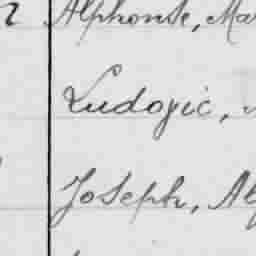 Alphonse, Ma
Ludogic,
Joseph, Al